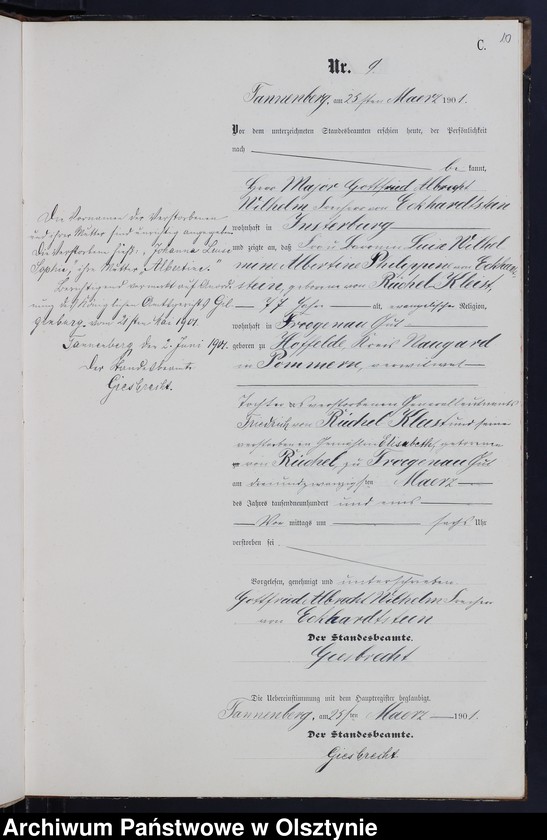 C. 10
Nr. 9.
Tannenberg, am 25ten Maerz 1901.
Vor dem unterzeichneten Standesbeamten erschien heute, der Persönlichkeit
nach be kannt,
Herr Major Gottfried Albrecht
Wilhelm Freiherr von Eckhardstein
wohnhaft in Insterburg
und zeigte an, daß Frau Baronin Luise Wilhel
mine Albertine Philippine von Eckhard
stein, geborene von Rüchel Kleist,
77 Jahre alt, evangelischer Religion,
wohnhaft in Froegenau Gut
geboren zu Hoffelde, Kreis Naugard
in Pommern, verwitwet
Tochter des verstorbenen Generalleutnants
Friedrich von Rüchel Kleist und seine
verstorbenen Gemahlin Elisabeth, geborene
von Rüchel, zu Froegenau Gut
am dreiundzwanzigsten Maerz
des Jahrs tausendneunhundert und eins
Vor mittags um sechs Uhr
verstorben sei.
Vorgelesen, genehmigt und unterschrieben
Gottfried Albrecht Wilhelm Freiherr
von Eckhardtstein
Der Standesbeamte.
Giesbrecht
Die Uebereinstimmung mit dem Hauptregister beglaubigt.
Tannenberg, am 25ten Maerz 1901.
Der Standesbeamte.
Giesbrecht
Die Vornamen der Verstorbenen
und ihrer Mutter sind unrichtig angegeben
Die Verstorbene hieß: "Johanna Luise
Sophie," ihre Mutter "Albertine."
Berichtigend vermerkt auf Anord
nung des Königlichen Amtsgerichts Gil
genburg vom 21ten Mai 1901.
Tannenberg, den 3. Juni 1901.
Der Standesbeamte
Giesbrecht.
Archiwum Państwowe w Olsztynie